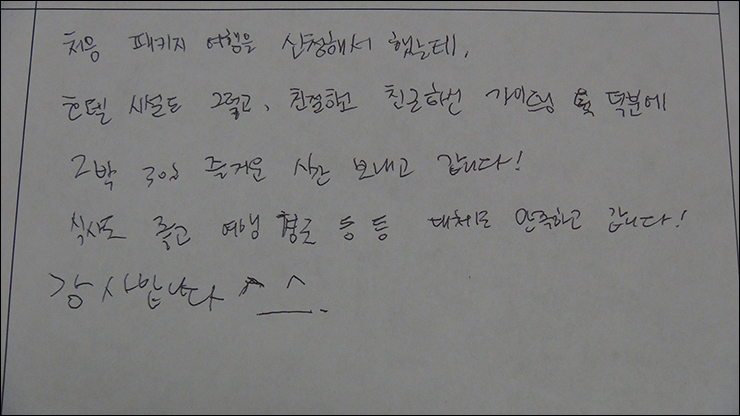 처음 패키지 여행을 신청해서 했는데,
호텔 시설도 그렇고, 친절하고 친근하신 가이드님 덕분에
2박 3일 즐거운 시간 보내고 갑니다!
식사도 좋고 여행 경로 등등 대체로 만족하고 갑니다!
감사합니다 ^_^.